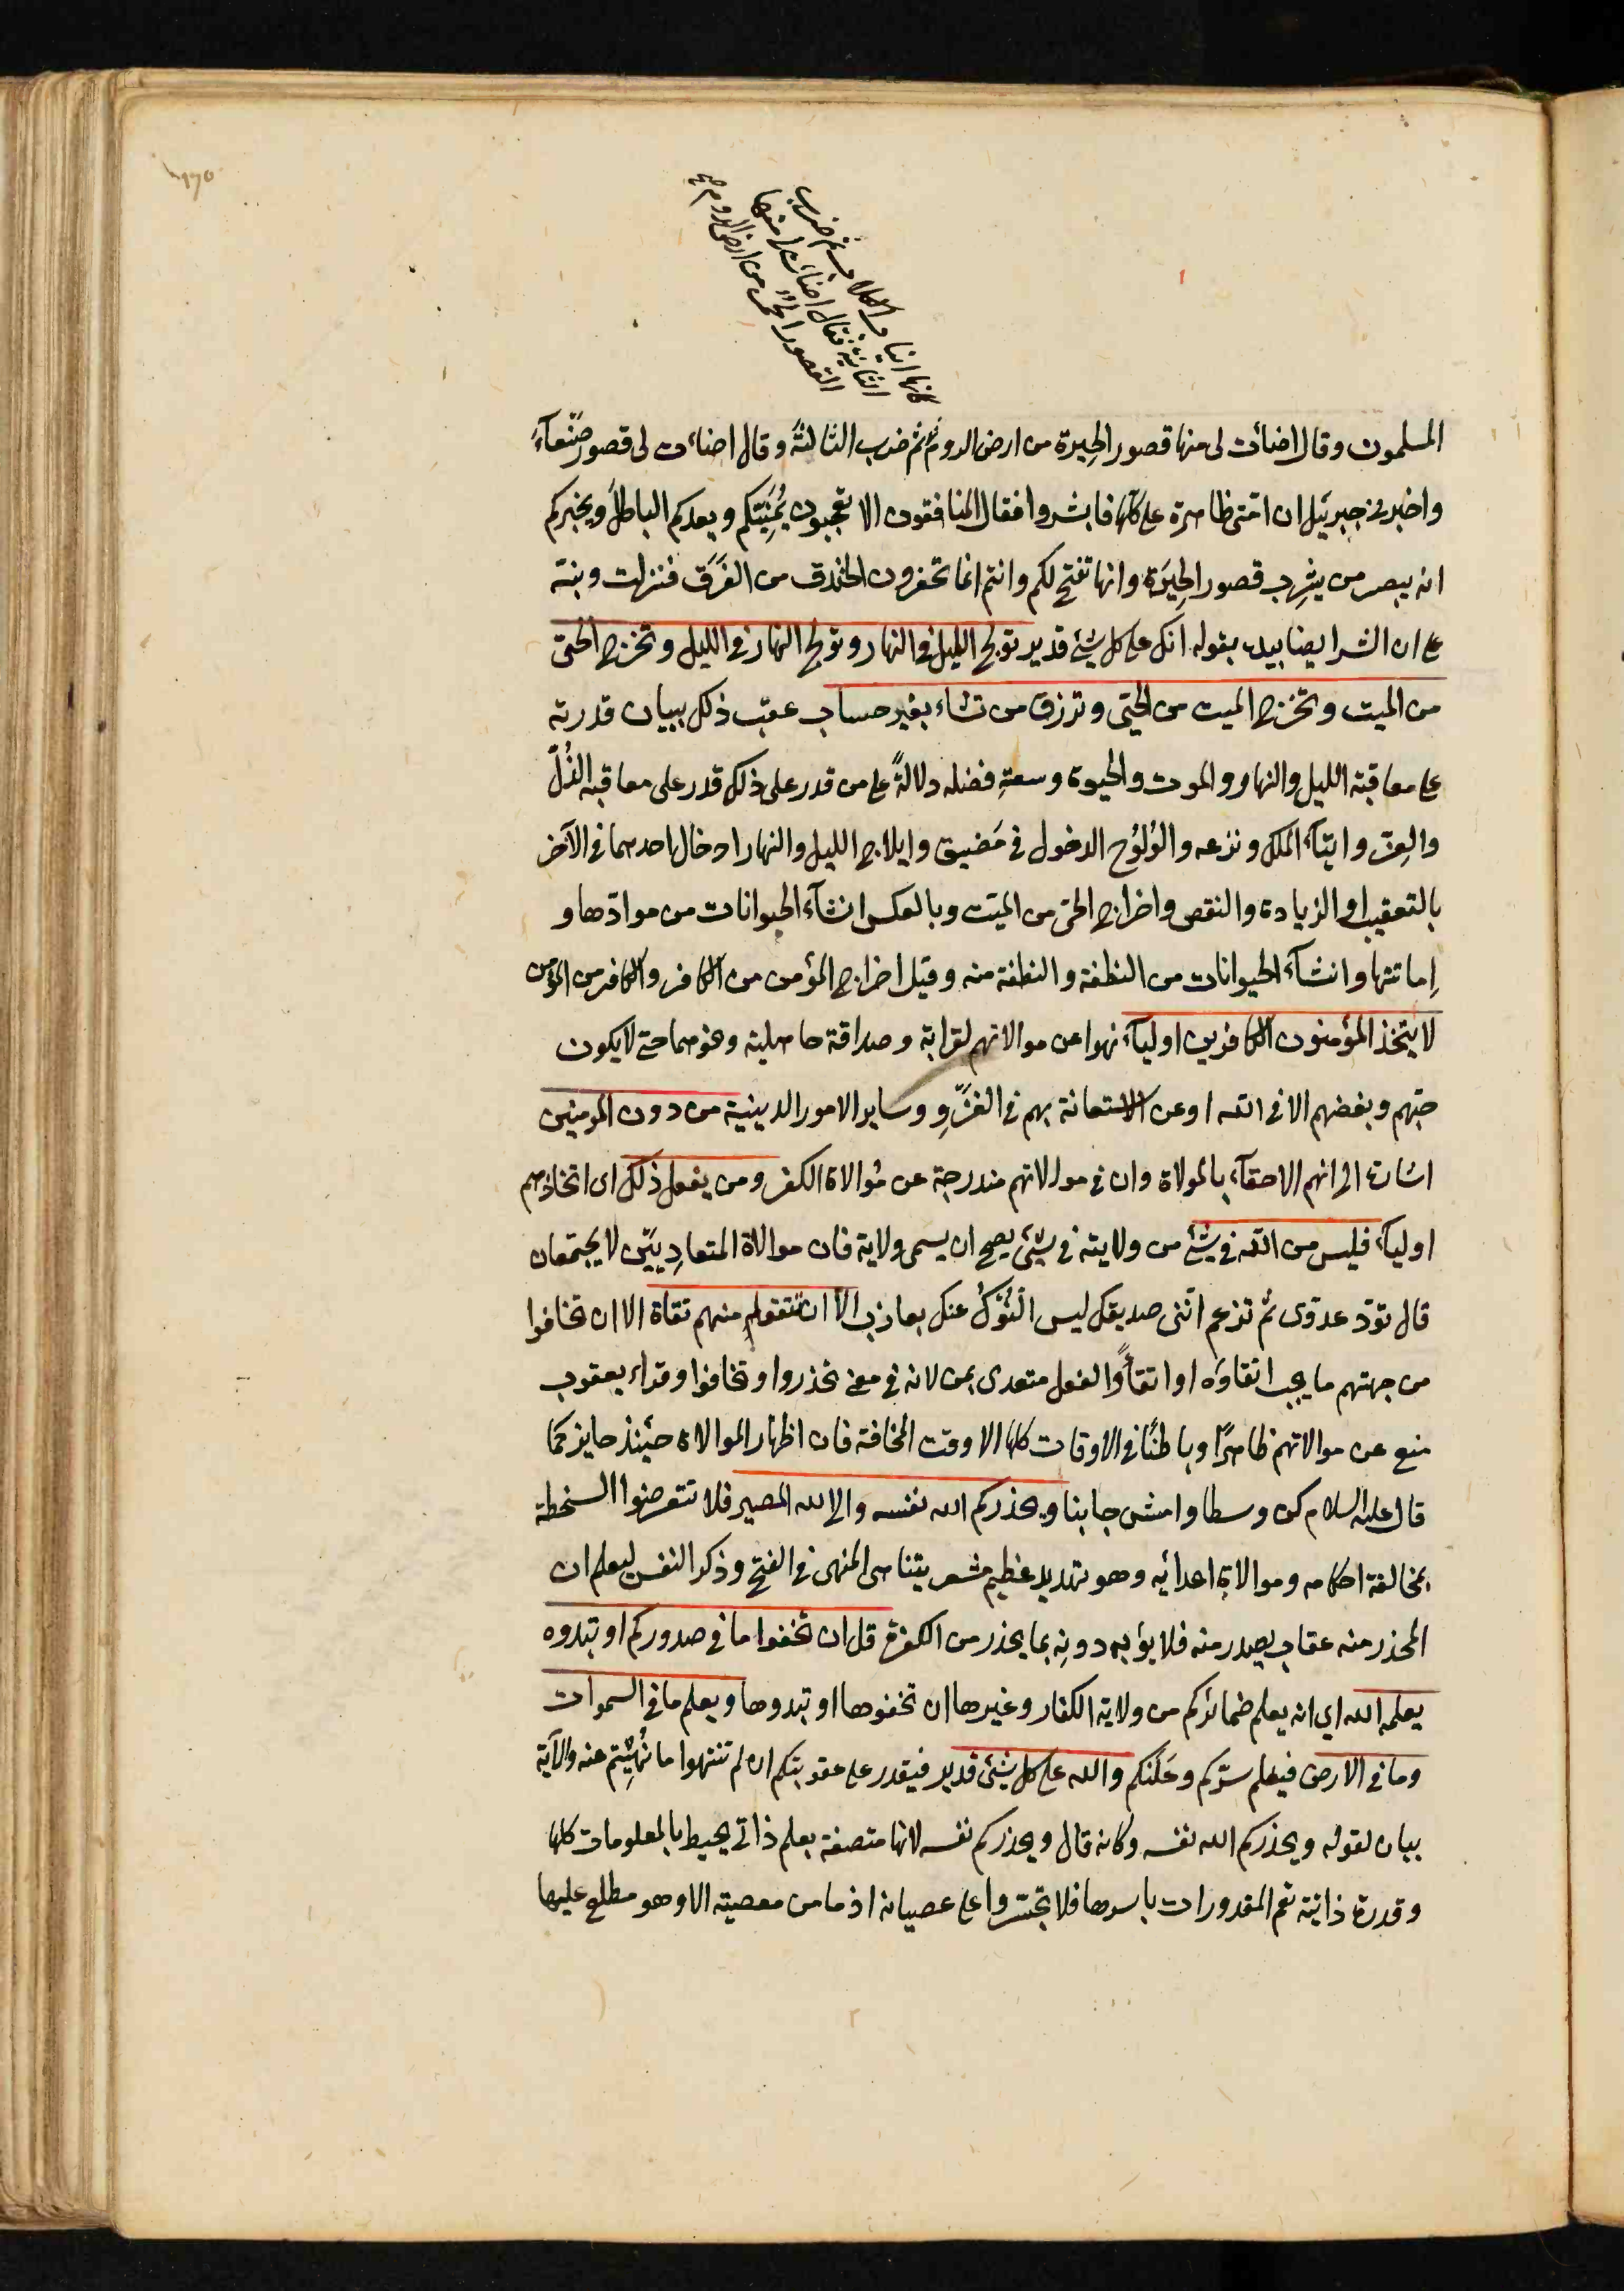 كانها انياب الكلاب ثم ضرب
الثانية فقال اضائت لى منها
القصور الحمر من ارض الروم صح
المسلمون وقال اضائت لى منها قصور الحِيرة من ارض الروم ثم ضرب الثالثة وقال اضاءت لى قصور صَنعآءَ
واخبرنى جبرئيل ان امّتى ظاهرة على كلّها فابشروا فقال المنافقون الا تعجبون يُمَنِّيكم ويعدكم الباطل ويخبركم
انه يبصر من يثرب قصور الحِيَرة وانها تفتح لكم وانتم انما تحفرون الخندق من الفَرَق فنزلت ونبّه
على ان الشر ايضا بيده بقوله انك على كل شئ قدير تولج الليل فى النهار وتولج النهار فى الليل وتخرج الحىّ
من الميت وتخرج الميت من الحىّ وترزق من تشاء بغير حساب عقّب ذلك ببيان قدرته
على معاقبة الليل والنهار والموت والحيوة وسعةِ فضله دلالةً على من قدر على ذلك قدر على معاقبه الذُلّ
والعِزّ وايتآء الملك ونزعه والوُلُوُج الدخول فى مَضيق وايلاج الليل والنهار ادخال احدهما فى الآخر
بالتعقيب او الزيادة والنقص واخراج الحىّ من الميّت وبالعكس انشآء الحيوانات من موادّها و
اِماتتها وانشآء الحيوانات من النطفة والنطفة منه وقيل اخراج المؤمن من الكافر والكافر من المؤمن
لا يتخذ المؤمنون الكافرين اوليآء نهوا عن موالاتهم لقرابة وصداقة جاهلية ونحوهما حتى لا يكون
حبّهم وبغضهم الا فى الله او عن الاستعانة بهم فى الغَزوِ وساير الامور الدينية من دون المومنين
اشارة الى انهم الاحقآء بالمولاة وان فى موالاتهم مندرجة عن مُوالاة الكفر ومن يفعل ذلك اى اتخاذهم
اوليآء فليس من الله فى شئ من ولايته فى شئ يصح ان يسمى ولاية فان موالاة المتعادِيَيْن لا يجتمعان
قال تودّ عدوّى ثم تزعم انّنى صديقك ليس النُوْكُ عنك بعازب الا ان تتقوا منهم تقاة الا ان تخافوا
من جهتهم ما يجب اتقاؤه او اتقاءً والفعل متعدى بمن لانه فى معنى تحذروا وتخافوا وقراء يعقوب
منع عن موالاتهم ظاهرًا وباطنًا فى الاوقات كلها الا وقت المخافة فان اظهار الموالاة حينئذ جايز كما
قال عليه السلام كن وسطا وامش جانبا ويحذركم الله نفسه والى الله المصير فلا تتعرضوا السخطه
بمخالفة احكامه وموالاة اعدائه وهو تهديد عظيم مشعر بتناهى المنهى فى القبح وذكر النفس ليعلم ان
المحذر منه عقاب يصدر منه فلا يؤبه دونِه بما يحذر من الكفرة قل ان تخفوا ما فى صدوركم او تبدوه
يعلمه الله اى انه يعلم ضمائركم من ولاية الكفار وغيرها ان تخفوها او تبدوها ويعلم ما فى السموات
وما فى الارض فيعلم سرّكم وعَلَنَكم والله على كل شئ قدير فيقدر على عقوبتكم ان لم تنتهوا ما نُهِيتم عنه والآية
بيان لقوله ويحذركم الله نفسه وكانه قال ويحذركم نفسه لانها متصفة بعلم ذاتى يحيط بالمعلومات كلها
وقدرة ذاتية تعم المقدورات باسرها فلا تجسّروا على عصيانه اذ ما من معصية الا وهو مطلع عليها